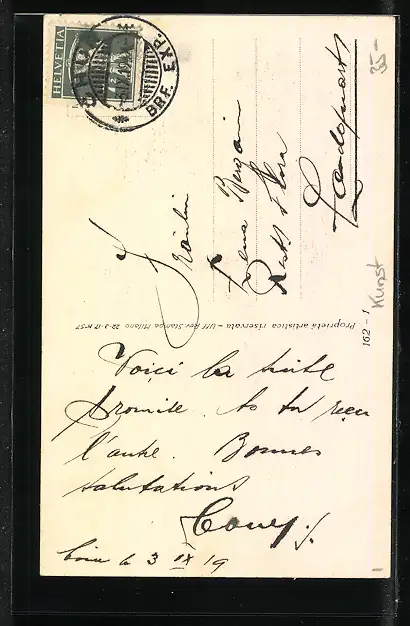 HELVETIA
BRF. EXP.
35-
Fräulein
Lena
Landquart
Proprietà artistica riservata - Uff. Rev. Stampa Milano 22-3-17 N° 57
162 - 1
Kunst
Voici la suite
promise. As tu reçu
l'autre. Bonnes
salutations
Coire le 3 IX 19